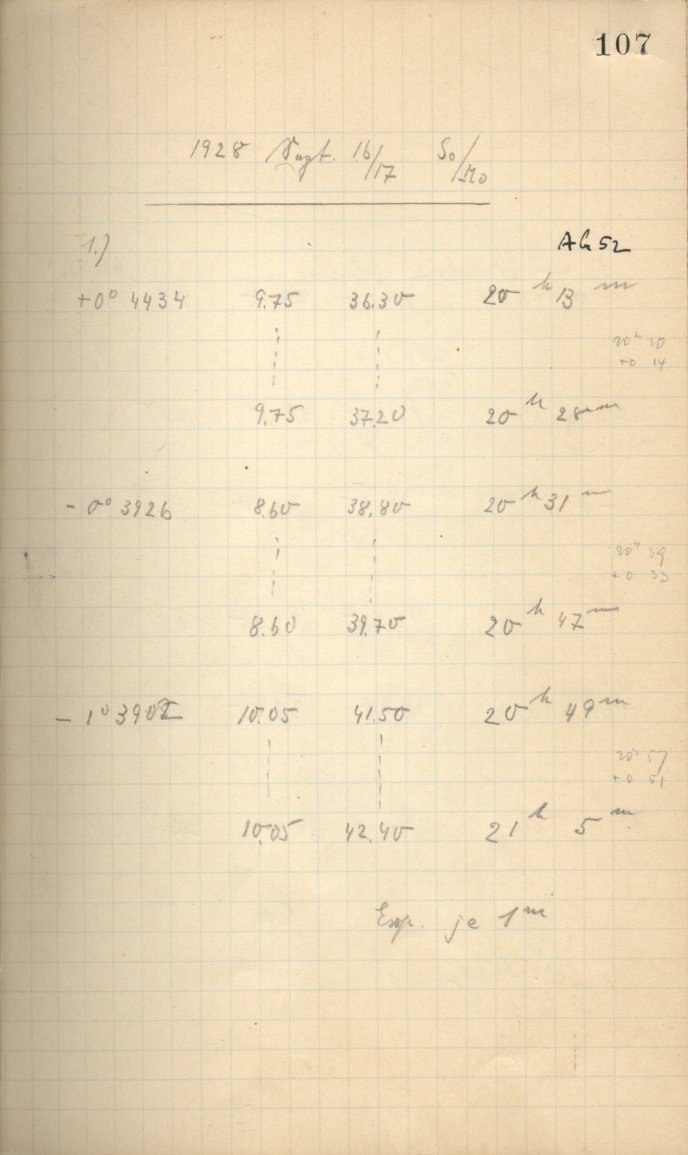 107
1928 Sept. 16/17 So/Mo
1.) AG 52
+0° 4434 9.75 36.30 20 h 13 m
20h 20
+0 14
9.75 37.20 20 h 28 m
- 0° 3926 8.60 38.80 20 h 31 m
20h 39
+0 33
8.60 39.70 20 h 47 m
- 1° 3902 10.05 41.50 20 h 49 m
20h 57
+0 51
10.05 42.40 21 h 5 m
Exp. je 1 m